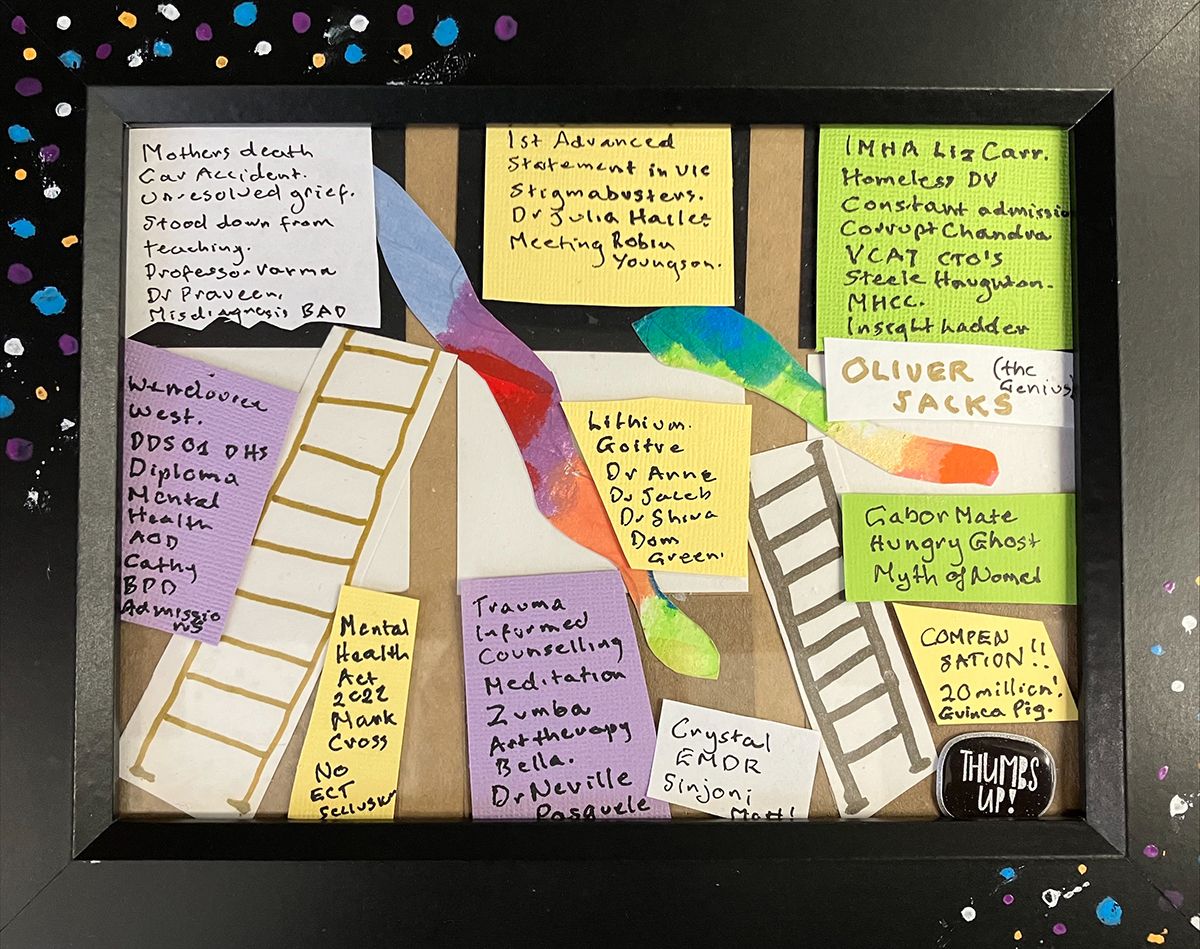 Mothers death
Car Accident.
Unresolved grief.
Stood down from
teaching.
Professor Varma
Dr Praveen.
Misdiagnosis BAD
1st Advanced
Statement in VIC
Stigmabusters.
Dr Julia Hailes
Meeting Robin
Youngson.
IMHA Liz Carr.
Homeless DV
Constant admissio
Corrupt Chandra
VCAT CTO's
Steele Haughton.
MHCC.
Insight Ladder
OLIVER (the
Genius)
SACKS
West.
DDS01 DHS
Diploma
Mental
Health
AOD
Cathy
BPD
Admissio
ns
Lithium.
Goitre
Dr Anne
Dr Jacob
Dr Shiva
Dom
Green.
Gabor Mate
Hungry Ghost
Myth of Nomel
Mental
Health
Act
2022
Mark
Cross
No
ECT
Seclusion
Trauma
Informed
Counselling
Meditation
Zumba
Art therapy
Bella.
Dr Neville
Pasquele
Crystal
EMDR
Sinjoni
Matt!
COMPEN
SATION!!
20 million!
Guinea Pig.
THUMBS
UP!